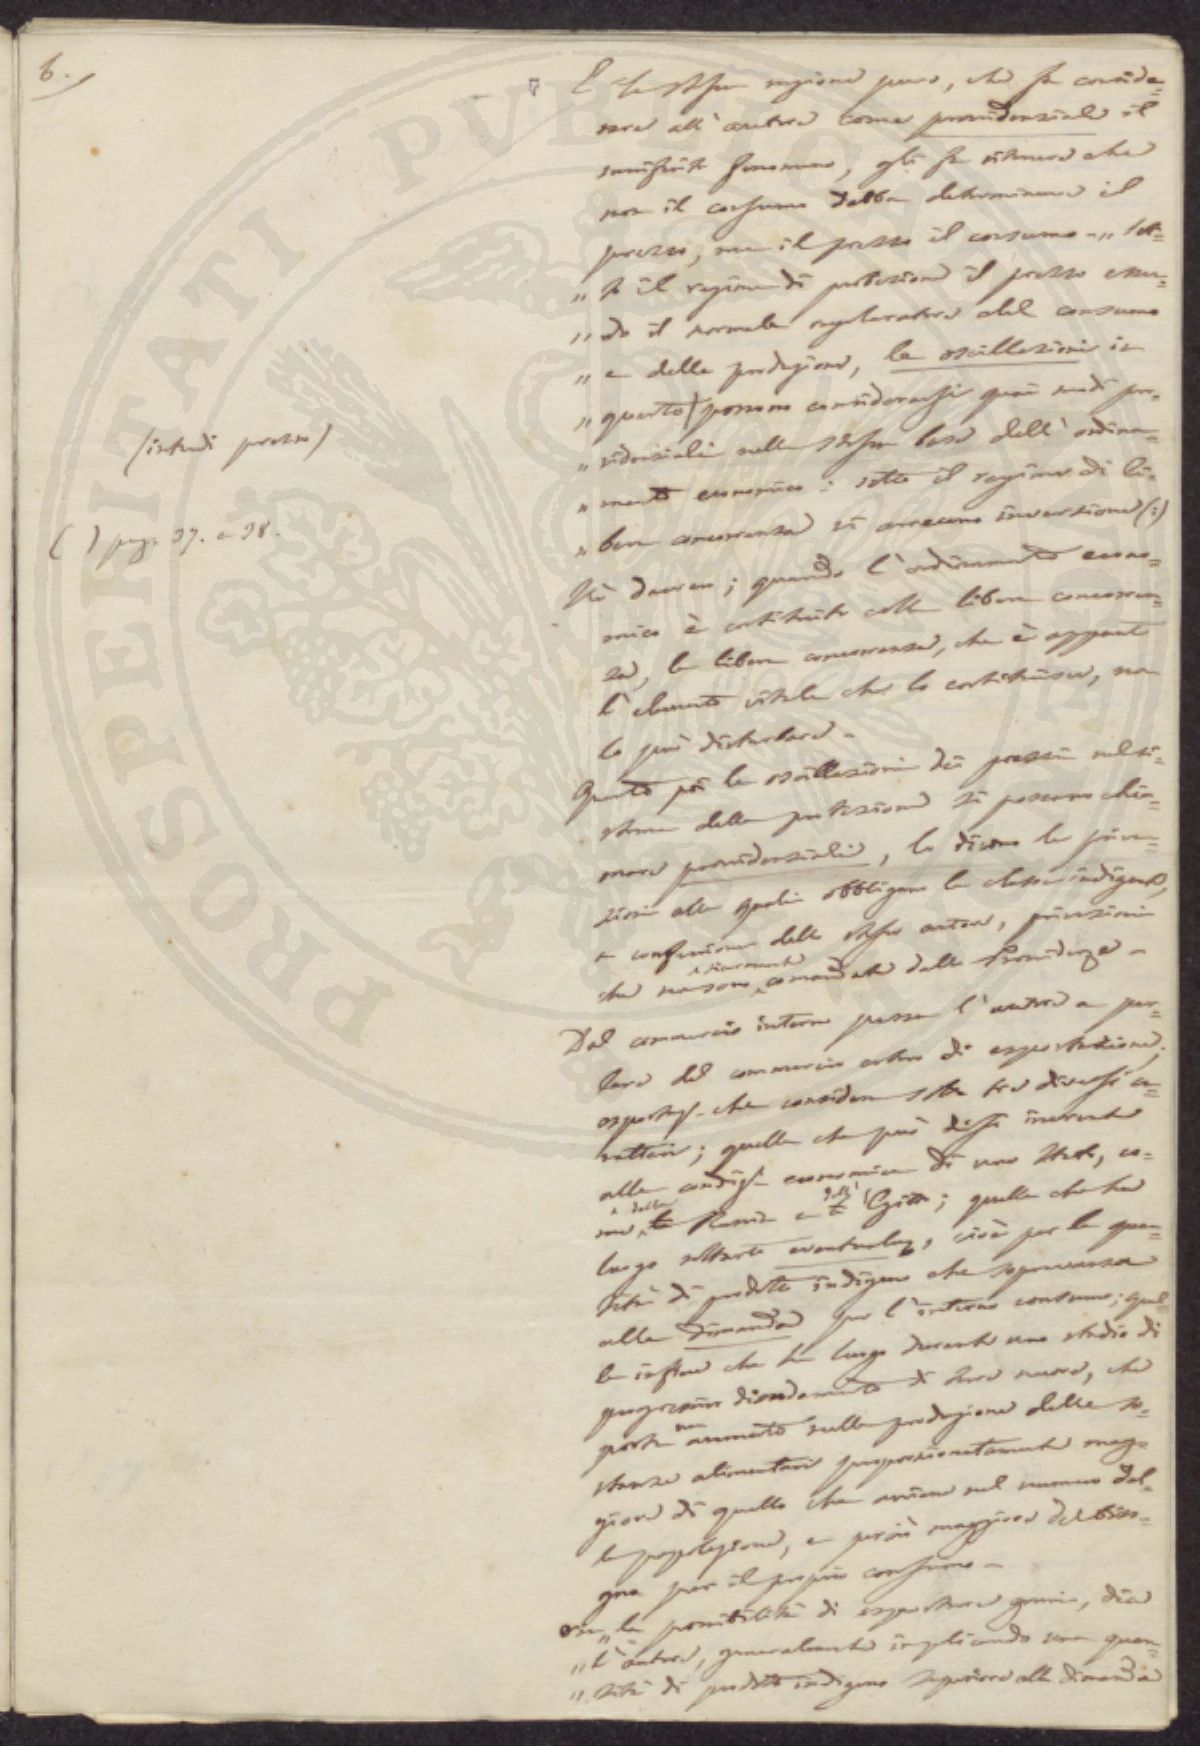 6.
E la stessa ragione pure, che fa conside=
rare all' autore come provvidenziale il
suriferito fenomeno, gli fa ritenere che
non il consumo debba determinare il
prezzo, ma il prezzo il consumo - „ Sot=
„ to il regime di protezione il prezzo essen=
„ do il normale regolatore del consumo
„ e della produzione, le oscillazioni in
„ questo) possono considerarsi quai modi prov=
(intendi prezzo)
„ videnziali nella stessa base dell' ordina=
„ mento economico: sotto il regime di li=
„ bera concorrenza vi arrecano inversione (:)
( ) pag. 37. e 38.
Nè davvero; quando l' ordinamento econo=
mico è costituito colla libera concorren=
za, la libera concorrenza, che è appunto
l' elemento vitale che lo costituisce, non
lo può disturbare -
Quanto poi le oscillazioni dei prezzi nel si=
stema della protezione si possano chia=
mare provvidenziali, lo dicono le priva=
zioni alle quali obbligano la classe indigente,
a confessione dello stesso autore, privazioni
che non sono sicuramente comandate dalla Provvidenza -
Dal commercio interno passa l' autore a par=
lare del commercio estero di esportazione;
che considera sotto tre diversi ca=
ratteri; quello che può dirsi inerente
alla condizione economica di uno Stato, co=
me della Russia e dell' Egitto; quello che ha
luogo soltanto eventualmente, cioè per la quan=
tità di prodotto indigeno che sopravanza
alla dimanda per l' interno consumo; quel=
lo infine che ha luogo durante uno stadio di
progressivo dissodamento di terre nuove, che
porta un aumento nella produzione delle so=
stanze alimentari proporzionatamente mag=
giore di quello che avviene nel numero del=
la popolazione, e perciò maggiore del biso=
gno per il proprio consumo -
Ora „ la possibilità di esportare grani, dice
„ l' autore, generalmente implicando una quan=
„ tità di prodotto indigeno superiore alla dimanda